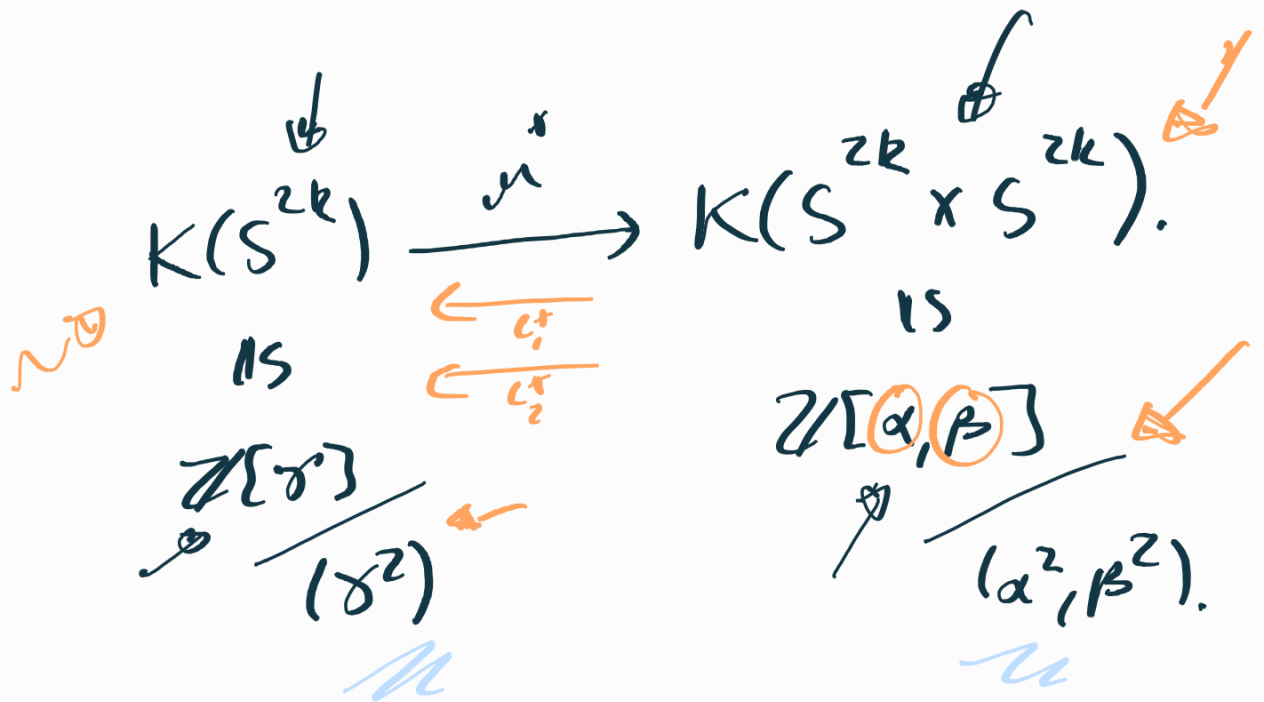 K(S^{2k}) \xrightarrow{μ^*} K(S^{2k} × S^{2k}).
ι_1^*
ι_2^*
≅ ≅
ℤ[γ] / (γ^2) ℤ[α, β] / (α^2, β^2).